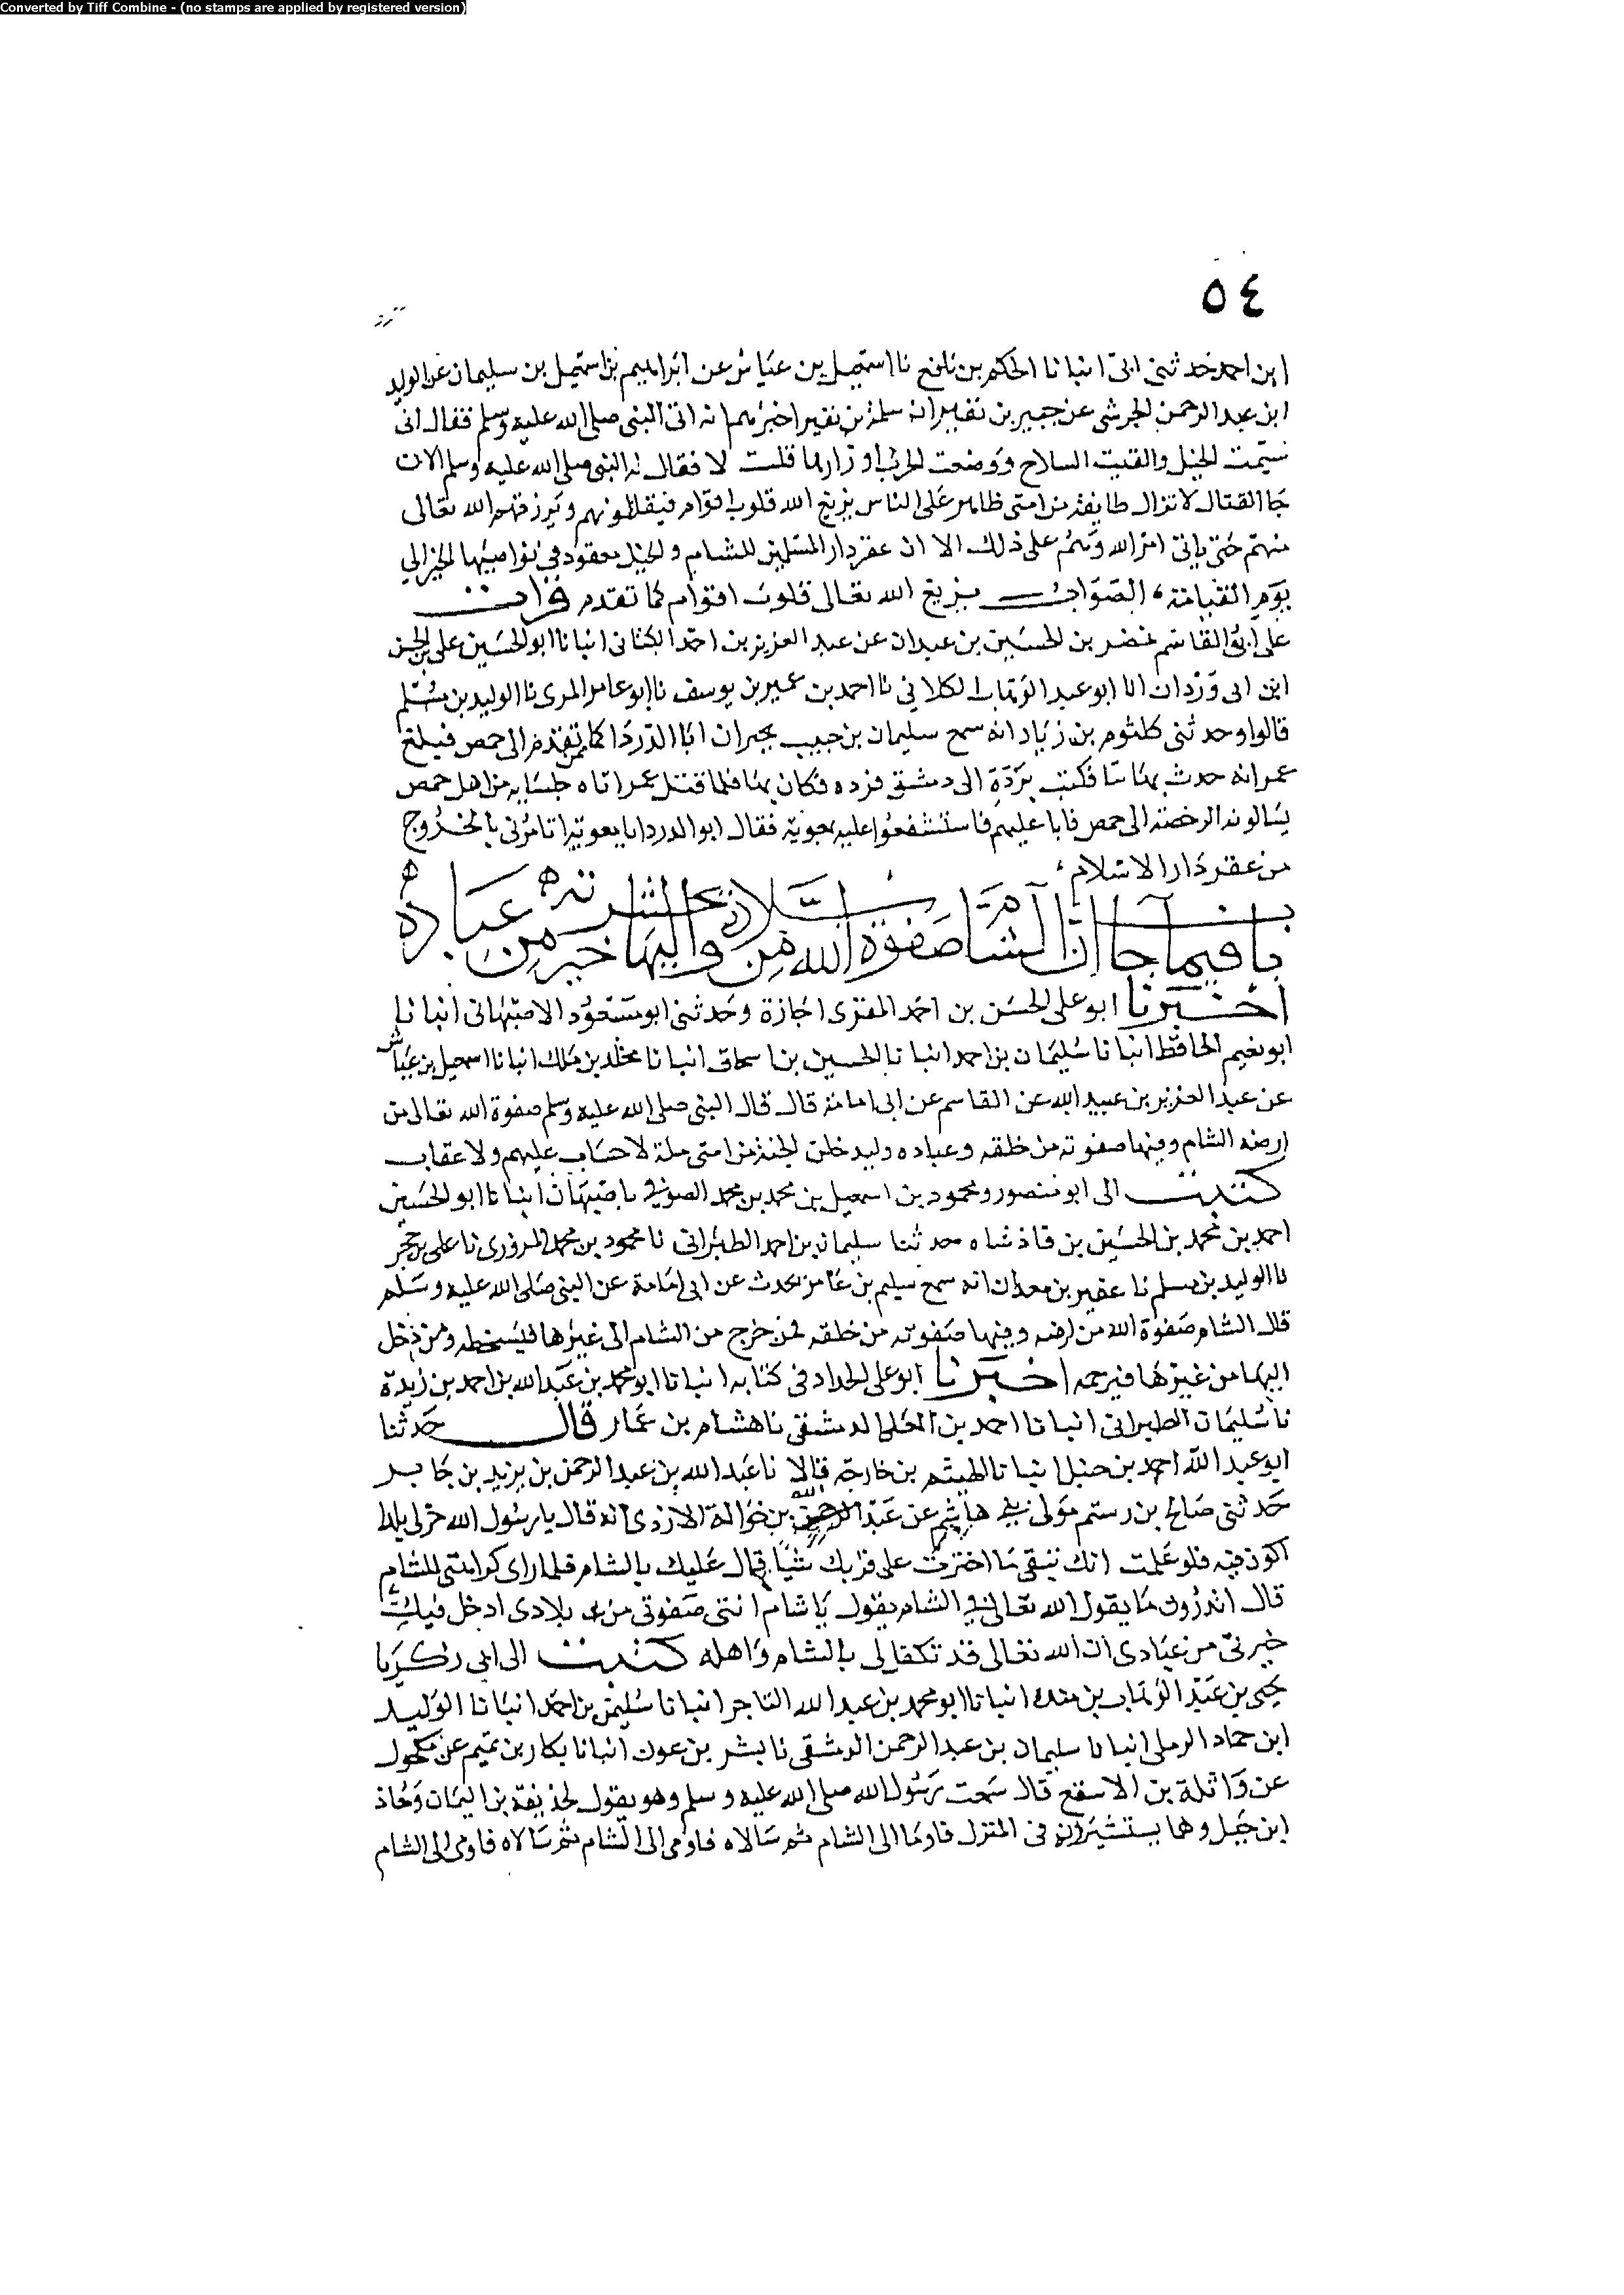 Converted by Tiff Combine - (no stamps are applied by registered version)
٥٤
ابن احمد حدثني ابي انبانا الحكم بن نافع نا اسمعيل بن عياش عن ابراهيم بن اسمعيل بن سليمان عن الوليد
ابن عبد الرحمن الجرشي عن جبير بن نفير ان سلمة بن نفير اخبرهم انه اتى النبي صلى الله عليه وسلم فقال اني
سيمت الخيل والقيت السلاح ووضعت الحرب اوزارها قلت لا فقال له النبي صلى الله عليه وسلم الان
جا القتال لا تزال طايفة من امتي ظاهر على الناس يزيغ الله قلوب اقوام فيقاتلونهم ويرزقهم الله تعالى
منهم حتى ياتي امر الله وهم على ذلك الا ان عقر دار المسلمين للشام والخيل معقود في نواصيها الخير الى
يوم القيامة الصواب يزيغ الله تعالى قلوب اقوام كما تقدم قرات
على ابي القاسم نصر بن الحسين بن عبدان عن عبد العزيز بن احمد الكتاني انبانا ابو الحسين علي بن الحسن
ابن ابي وردان انا ابو عبد الوهاب الكلابي نا احمد بن عمير بن يوسف نا ابو عامر المري نا الوليد بن مسلم
قالوا وحدثني كلثوم بن زياد انه سمع سليمان بن حبيب يخبر ان ابا الدردا كان تقدم الى حمص فبلغ
عمر انه حدث بها فكتب بردة الى دمشق فرده فكان بها فلما قتل عمر اتاه جلسايه من اهل حمص
يسالونه الرخصة الى حمص فابا عليهم فاستشفعوا عليه بمعوية فقال ابو الدردا يا معوية اتامرني بالخروج
من عقر دار الاسلام
باب فيما جا ان الشام صفوة الله من بلاده واليها يحشر خيرته من عباده
اخبرنا ابو علي الحسن بن احمد المقري اجازة وحدثني ابو مسعود الاصبهاني انبانا
ابو نعيم الحافظ انبانا سليمان بن احمد انبانا الحسين بن اسحاق انبانا مخلد بن ملك انبانا اسمعيل بن عياش
عن عبد العزيز بن عبيد الله عن القاسم عن ابي امامة قال قال النبي صلى الله عليه وسلم صفوة الله تعالى من
ارضه الشام وفيها صفوته من خلقه وعباده وليدخلن الجنة من امتي ثلة لا حساب عليهم ولا عقاب
كتبت الى ابو منصور ومحمود بن اسمعيل بن محمد بن محمد الصوفي باصبهان انبانا ابو الحسين
احمد بن محمد بن الحسين بن فاذشاه حدثنا سليمان بن احمد الطبراني نا محمود بن محمد المروزي نا علي بن حجر
نا الوليد بن مسلم نا عفير بن معدان انه سمع سليم بن عامر يحدث عن ابي امامة عن النبي صلى الله عليه وسلم
قال الشام صفوة الله من ارضه وفيها صفوته من خلقه فمن خرج من الشام الى غيرها فبسخطه ومن دخل
اليها من غيرها فبرحمه اخبرنا ابو علي الحداد في كتابه انبانا ابو محمد بن عبد الله بن احمد بن زيدة
نا سليمان الطبراني انبانا احمد بن المعلا الدمشقي نا هشام بن عمار قال حدثنا
ابو عبد الله احمد بن حنبل انبانا الهيثم بن خارجة قالا نا عبد الله بن عبد الرحمن بن يزيد بن جابر
حدثني صالح بن رستم مولى بني هاشم عن عبد الله بن حوالة الازدي انه قال يا رسول الله خر لي بلدا
اكون فيه فلو علمت انك تبقى ما اخترت على قربك شيا قال عليك بالشام فلما راى كراهتي للشام
قال اتدرون ما يقول الله تعالى في الشام يقول يا شام انتي صفوتي من بلادي ادخل فيك
خيرتي من عبادي ان الله تعالى قد تكفل لي بالشام واهله كتبت الى ابي زكريا
يحيى بن عبد الوهاب بن منده انبانا ابو محمد بن عبد الله التاجر انبانا سليمن بن احمد انبانا الوليد
ابن حماد الرملي انبانا سليمان بن عبد الرحمن الدمشقي نا بشر بن عون انبانا بكار بن تميم عن مكحول
عن واثلة بن الاسقع قال سمعت رسول الله صلى الله عليه وسلم وهو يقول لحذيفة بن اليمان ومعاذ
ابن جبل وهما يستشيرانه في المنزل فاوما الى الشام ثم سالاه فاومى الى الشام ثم سالاه فاومى الى الشام